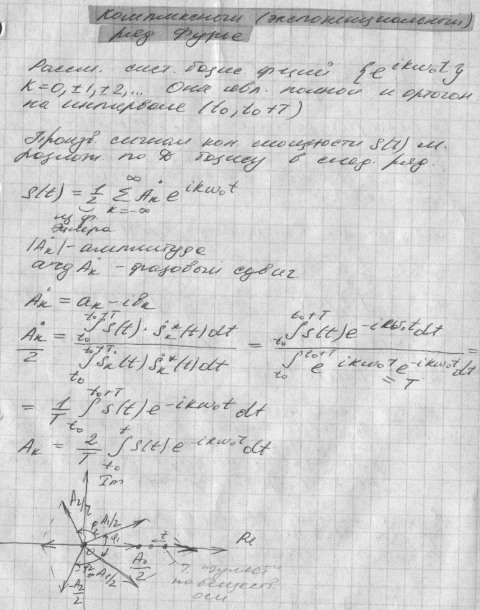 Комплексный (экспоненциальный)
ряд Фурье
Рассм. сист. базис. функций {e^{ikω₀t}}
k=0, ±1, ±2,... Она явл. полной и ортогон
на интервале (t₀, t₀+T)
Произв. сигнал кон. мощности s(t) м.
разлож. по базису в след. ряд.
s(t) = 1/2 Σ_{k=-∞}^{∞} Ȧₖ e^{ikω₀t}
из ф.
Эйлера
|Ȧₖ| - амплитуда
arg Ȧₖ - фазовый сдвиг
Ȧₖ = aₖ - ibₖ
Ȧₖ/2 = ∫_{t₀}^{t₀+T} s(t)·ṡₖ*(t)dt / ∫_{t₀}^{t₀+T} ṡₖ(t)ṡₖ*(t)dt = ∫_{t₀}^{t₀+T} s(t)e^{-ikω₀t}dt / ∫_{t₀}^{t₀+T} e^{ikω₀t}e^{-ikω₀t}dt =
= T
= 1/T ∫_{t₀}^{t₀+T} s(t)e^{-ikω₀t}dt
Aₖ = 2/T ∫_{t₀}^{t} s(t)e^{-ikω₀t}dt
Im
A₂/2
A₁/2
φ₁
Re
0
A₀/2
A₁/2
-A₂/2
"гуляет"
по веществ.
оси